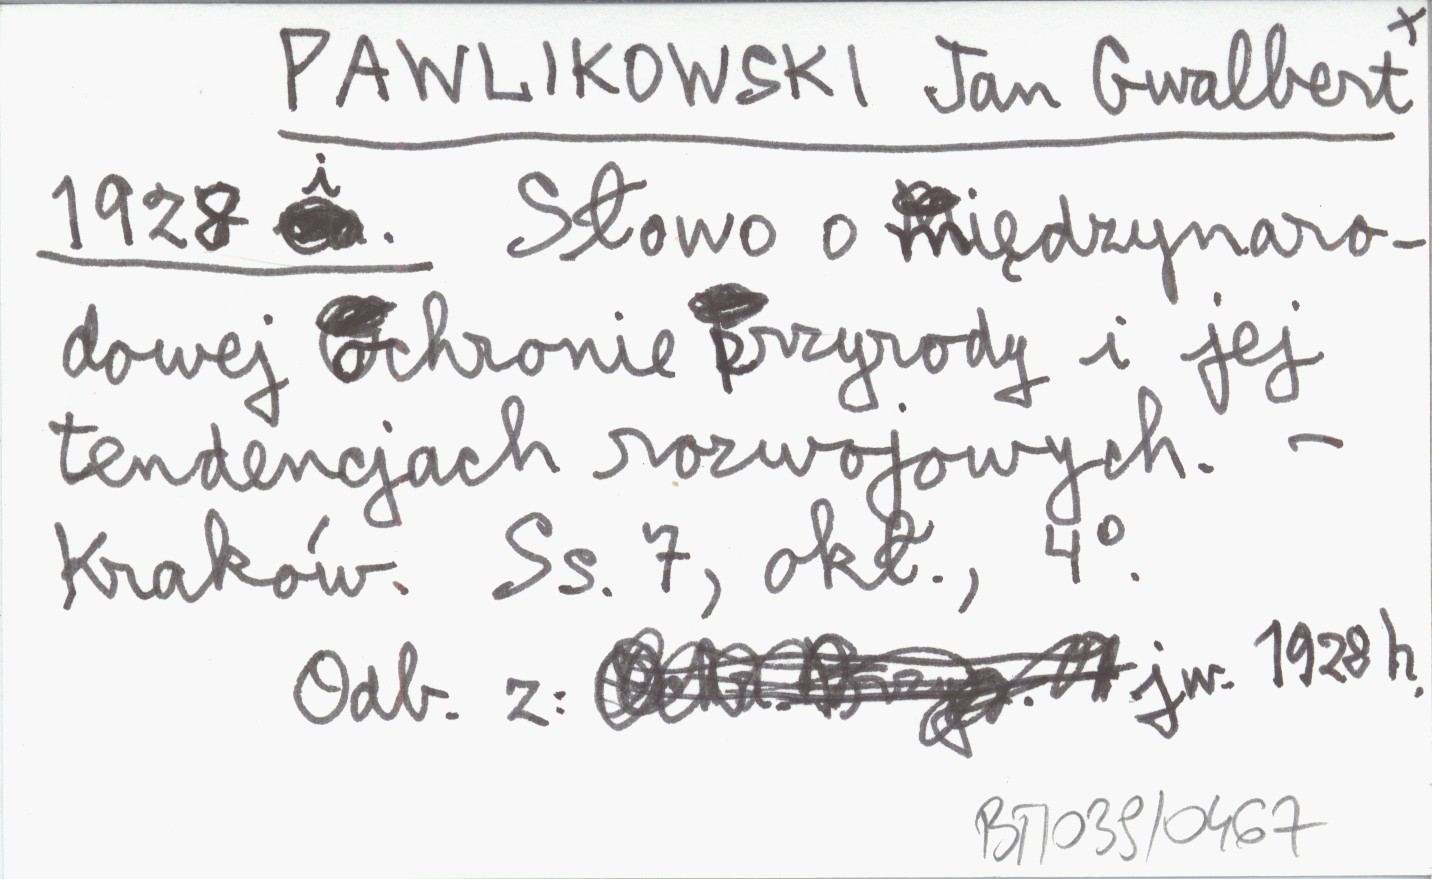 PAWLIKOWSKI Jan Gwalbert x
1928 i. Słowo o międzynaro-
dowej ochronie przyrody i jej
tendencjach rozwojowych. –
Kraków. Ss. 7, okł., 4°.
Odb. z: jw. 1928 h.